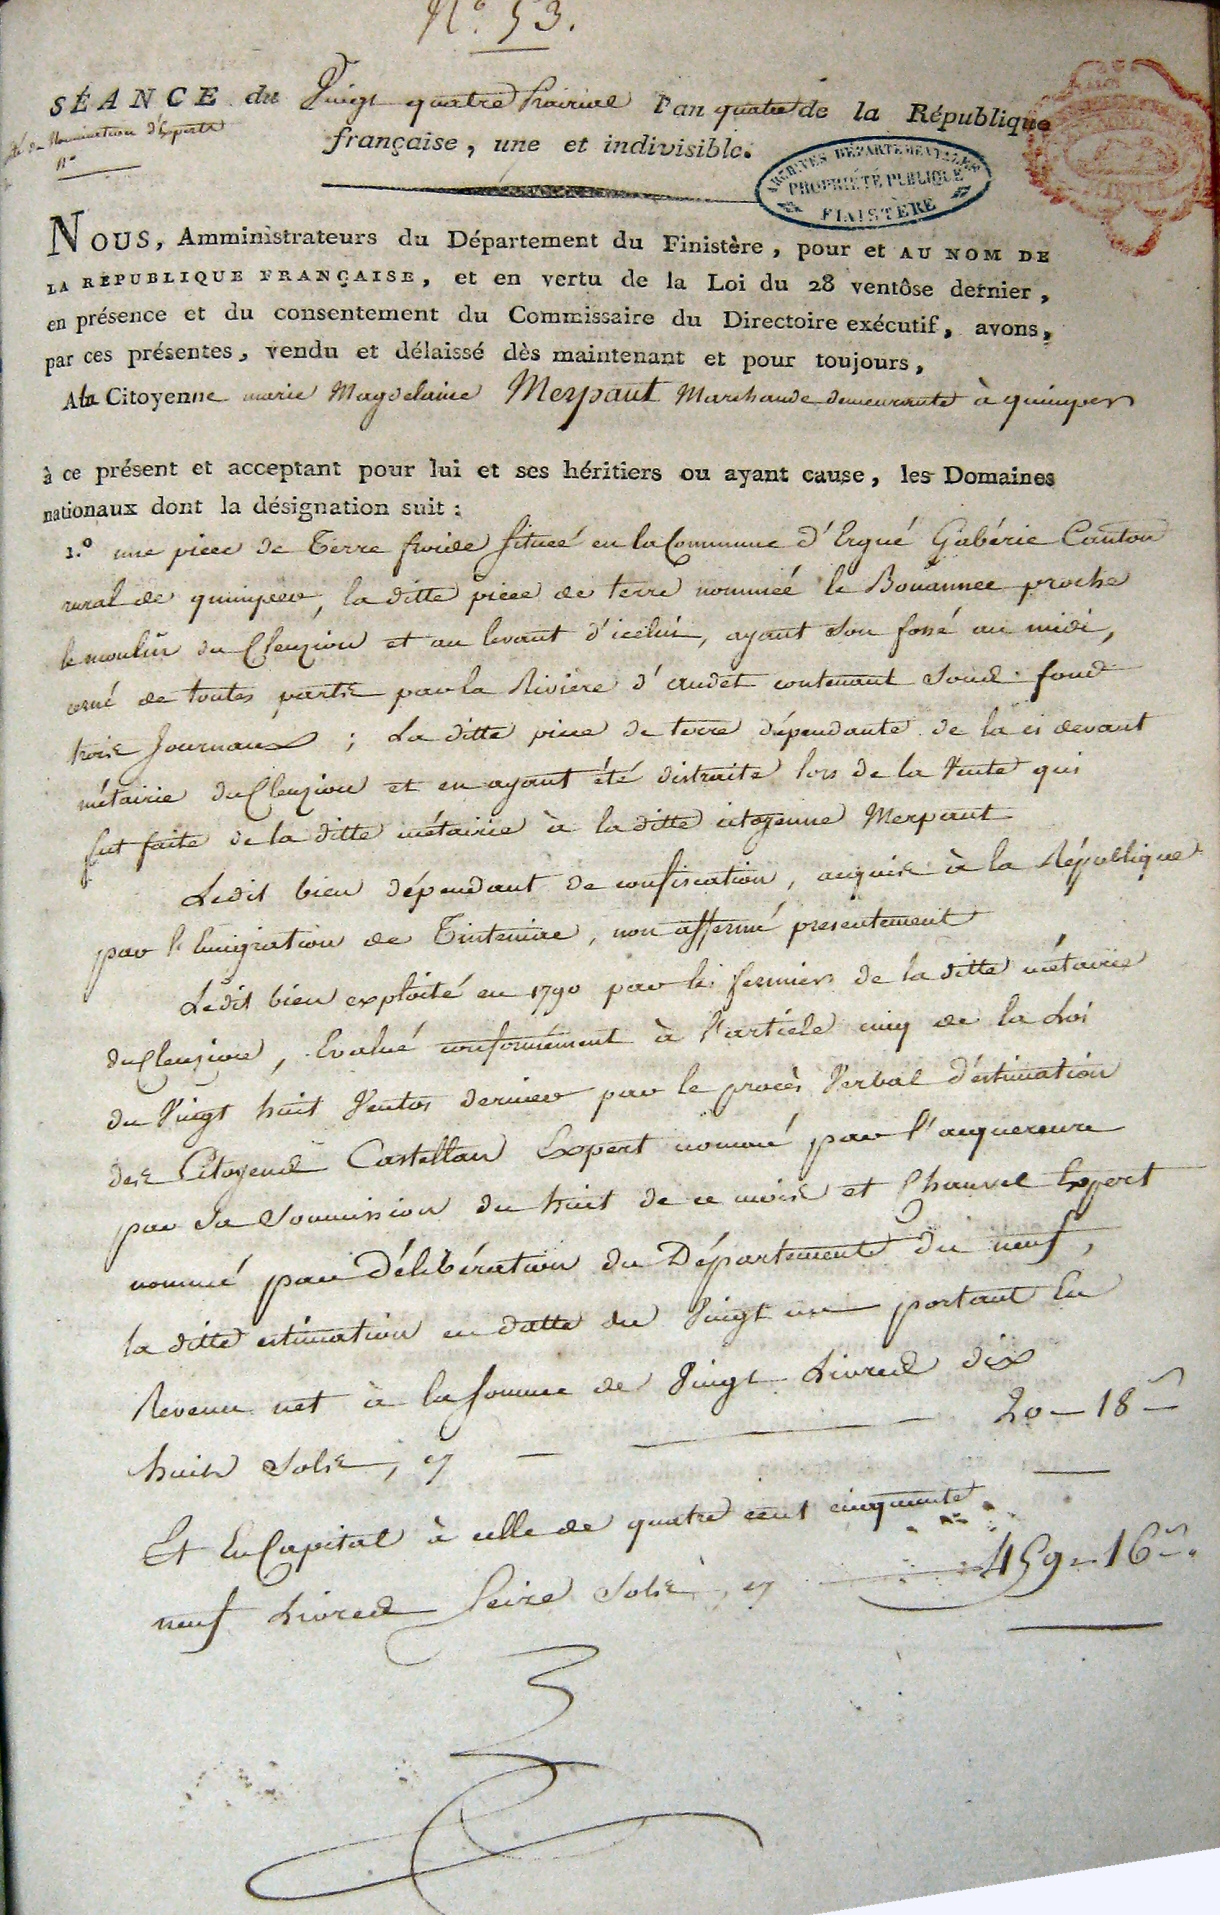 N.° 53.
SÉANCE du Vingt quatre Prairial l'an quatre de la République
française, une et indivisible.
de Nomination d'Experts
N°
ARCHIVES DÉPARTEMENTALES
PROPRIÉTÉ PUBLIQUE
FINISTÈRE
NOUS, Amministrateurs du Département du Finistère, pour et AU NOM DE
LA RÉPUBLIQUE FRANÇAISE, et en vertu de la Loi du 28 ventôse dernier,
en présence et du consentement du Commissaire du Directoire exécutif, avons,
par ces présentes, vendu et délaissé dès maintenant et pour toujours,
A la Citoyenne marie Magdelaine Merpaut Marchande demeurante à quimper
à ce présent et acceptant pour lui et ses héritiers ou ayant cause, les Domaines
nationaux dont la désignation suit :
1.° une piece de Terre froide située en la Commune d'Ergué Gabéric Canton
rural de quimper, la ditte piece de terre nommée le Bouannec proche
le moulin du Cleuziou et au levant d'icelui, ayant son fossé au midi,
cerné de toutes parts par la Riviere d'audet contenant sous fond
trois Journaux ; La ditte piece de terre dépendante de la ci devant
métairie du Cleuziou et en ayant été distraite lors de la Vente qui
fut faite de la ditte métairie à la ditte citoyenne Merpaut
Ledit bien dépendant de confiscation, acquis à la République
par l'Emigration de Tinteniac, non affermé presentement
Ledit bien exploité en 1790 par les fermiers de la ditte métairie
du Cleuziou, Evalué conformément à l'article cinq de la Loi
du Vingt huit Ventos dernier par le procès Verbal d'estimation
des Citoyens Castellan Expert nommé par l'acquereure
par sa Soumission du huit de ce mois et Chauvel Expert
nommé par Délibération du Département du neuf,
la ditte estimation en datte du Vingt un portant En
Revenu net à la somme de Vingt Livres dix
huit Sols, cy 20 - 18
Et En Capital à celle de quatre cent cinquante
neuf Livres Seize Sols, cy 459 - 16